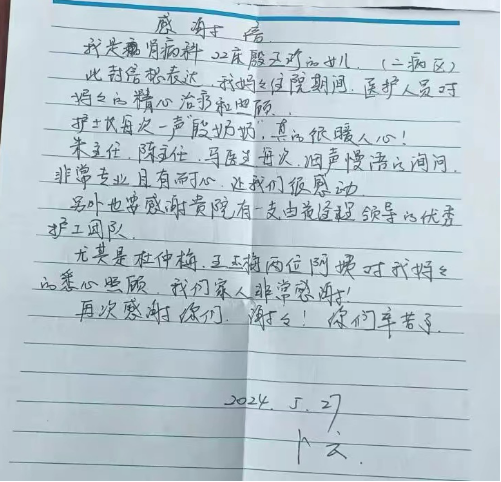 感谢信
我是肾病科22床殷玉珍的女儿.(二病区)
此封信想表达.我妈々住院期间.医护人员对
妈々的精心治疗和照顾.
护士长每次一声"殷奶奶".真的很暖人心!
朱主任.陈主任.马医生每次.细声慢语的询问.
非常专业且有耐心.让我们很感动.
另外也要感谢贵院.有一支由 领导的优秀
护工团队.
尤其是杜仲梅.王玉梅两位阿姨对我妈々
的悉心照顾.我们家人非常感谢!
再次感谢你们.谢々!你们辛苦了.
2024.5.27
卜云.